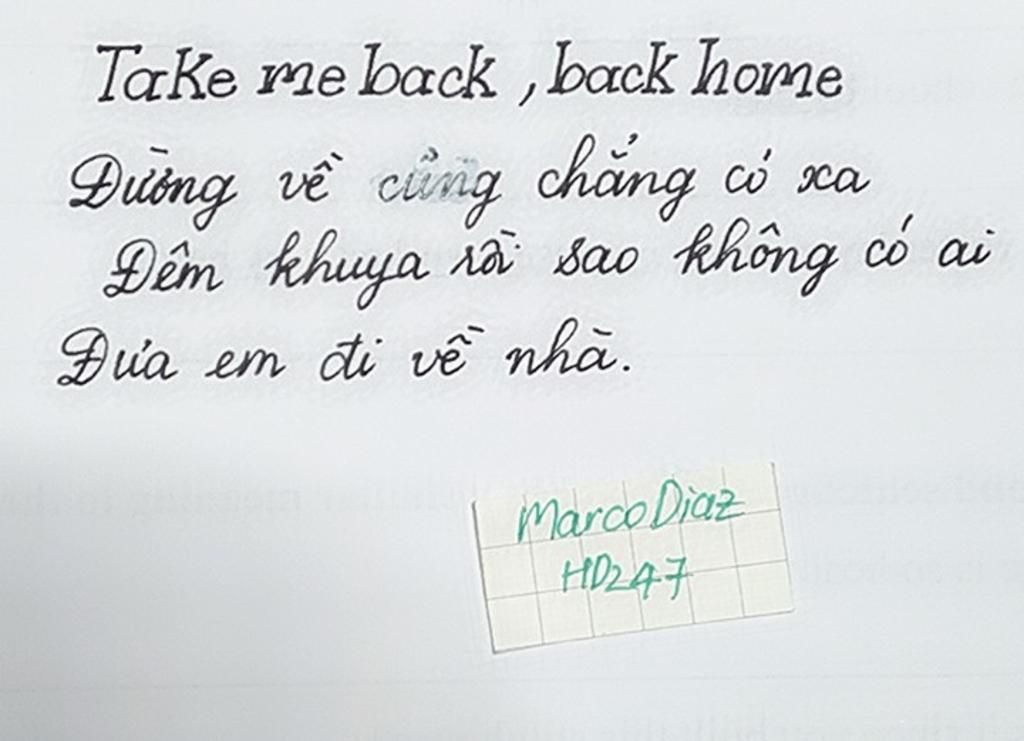 Take me back, back home
Đường về cũng chẳng có xa
Đêm khuya rồi sao không có ai
Đưa em đi về nhà.
Marco Diaz
HD247